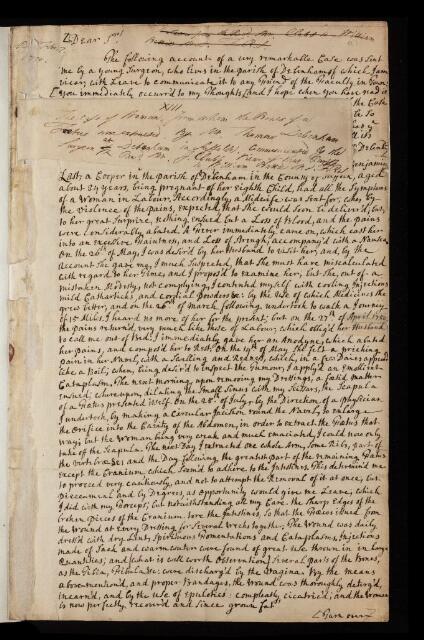 Dear Sir
The following account of a very remarkable Case was sent
me by a young Surgeon, who lives in the parish of Debenham of which I am
vicar, with Leave to communicate it to any friend of the Faculty in Town;
you immediately occurr'd to my Thoughts, and I hope when you have read it
XIII.
of a Woman, from whom the Bones of a
Foetus were extracted By Mr.
Surgeon at Debenham in Suffolk; Communicated By the
Last, a Cooper in the parish of Debenham in the County of Suffolk, aged
about 24 years, being pregnant of her eighth Child, had all the Symptoms
of a Woman in Labour. Accordingly, a Midwife was sent for, who, by
the Violence of the pains, expected that She would soon be deliver'd; but,
to her great Surprize, nothing ensued but a Loss of blood, and the pains
were considerably abated. A Fever immediately came on, which cast her
into an excessive Faintness, and Loss of Strength, accompany'd with a Nausea.
On the 20th of May, I was desir'd by her Husband to visit her, and, by the
account She gave me, I much Suspected, that She must have miscalculated
with regard to her Time, and I propos'd to examine her, but She, out of a
mistaken Modesty, not complying, I contented myself with cooling Injections
mild Catharticks, and cordial by the Use of which Medicines She
grew better, and on the 26th of March following, undertook to walk a Journey
of 15 Miles. I heard no more of her for the present; but on the 27th of April
the pains return'd, very much like those of Labour, which oblig'd her Husband
to call me out of Bed. I immediately gave her an Anodyne, which abated
her pains, and compos'd her to Rest. On the 19th of May She felt a pricking
pain in her Navel, with a Swelling and Redness, which, in a few Daies appeared
like a Boil; when, being desir'd to inspect the Tumour, I apply'd an emollient
Cataplasm. The next morning, upon removing my Dressings, a foetid matter
ensued, whereupon, dilating the Small Sinus with my Scissars, the Scapula
of a Foetus presented itself. On the 28th of July, by the Direction of a physician
I undertook, by making a Circular Incision round the Navel, to enlarge
the Orifice into the Cavity of the Abdomen, in order to extract the Foetus that
way; but the Woman being very weak and much emaciated, I could now only
take of the Scapula. The next Day I extracted one whole Arm, Some Ribs, part of
the Vertebrae; and the Day following the greatest part of the remaining Bones
except the Cranium, which Seem'd to adhere to the Intestines. This determin'd me
to proceed very cautiously, and not to attempt the Removal of it at once, but
piecemeal and by Degrees, as opportunity would give me Leave, which
I did with my Forceps; but notwithstanding all my Care, the sharp Edges of the
broken Pieces of the Cranium tore the Intestines, So that the Faeces issued from
the Wound at every Dressing for Several Weeks together. The Wound was daily
dress'd with dry Lint, Spirituous Fomentations and Cataplasms. Injections
made of Sack and warm water were found of great Use thrown in in large
Quantities; and (what is well worth observation) Several parts of the Bones,
as the Tibia, Fibula, &c. were discharg'd by the Vagina. By the means
abovementioned, and proper Bandages, the Wound was thoroughly deterg'd,
incarn'd, and by the use of epulotics compleatly cicatriz'd; and the Woman
is now perfectly recover'd and since grown fat.